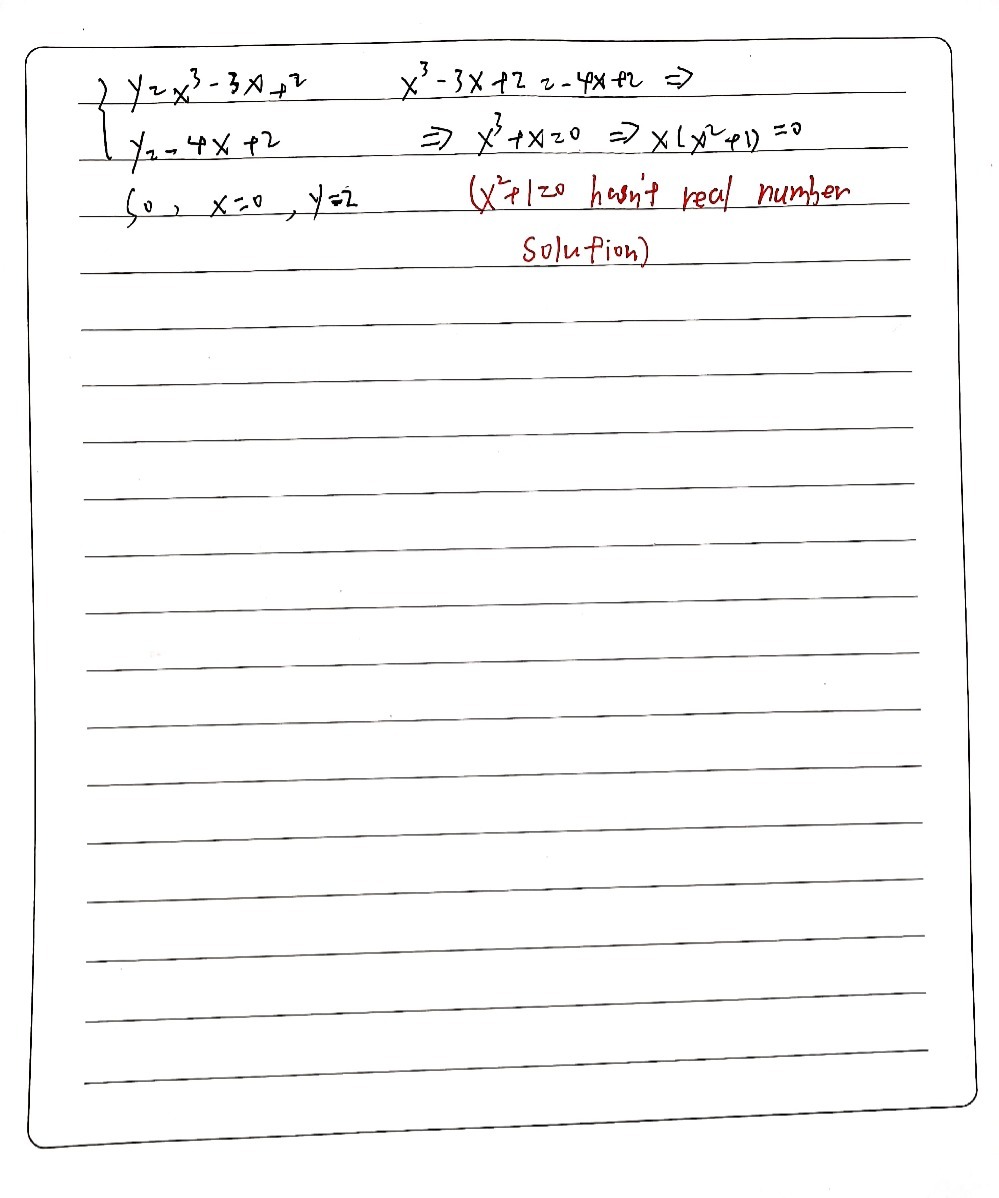 { y=x³-3x+2 x³-3x+2=-4x+2 ⇒
y=-4x+2 ⇒ x³+x=0 ⇒ x(x²+1)=0
So, x=0, y=2 (x²+1=0 hasn't real number
solution)